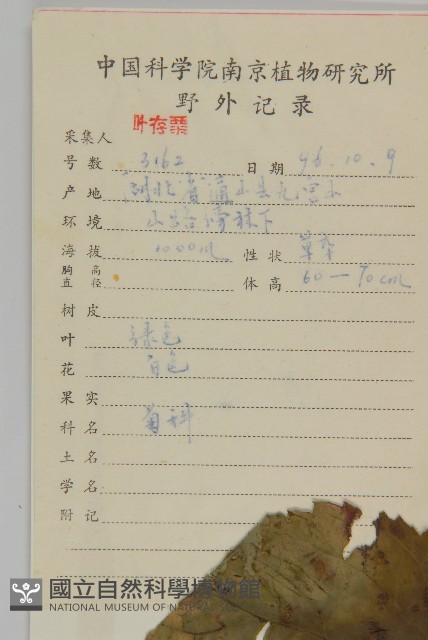 中国科学院南京植物研究所
野外记录
采集人 叶存粟
号数 3162 日期 96.10.9
产地 湖北省通山县九宫山
环境 山谷 林下
海拔 1000m 性状 草本
胸高直径 体高 60—70cm
树皮
叶 绿色
花 白色
果实
科名 菊科
土名
学名
附记
國立自然科學博物館
NATIONAL MUSEUM OF NATURAL